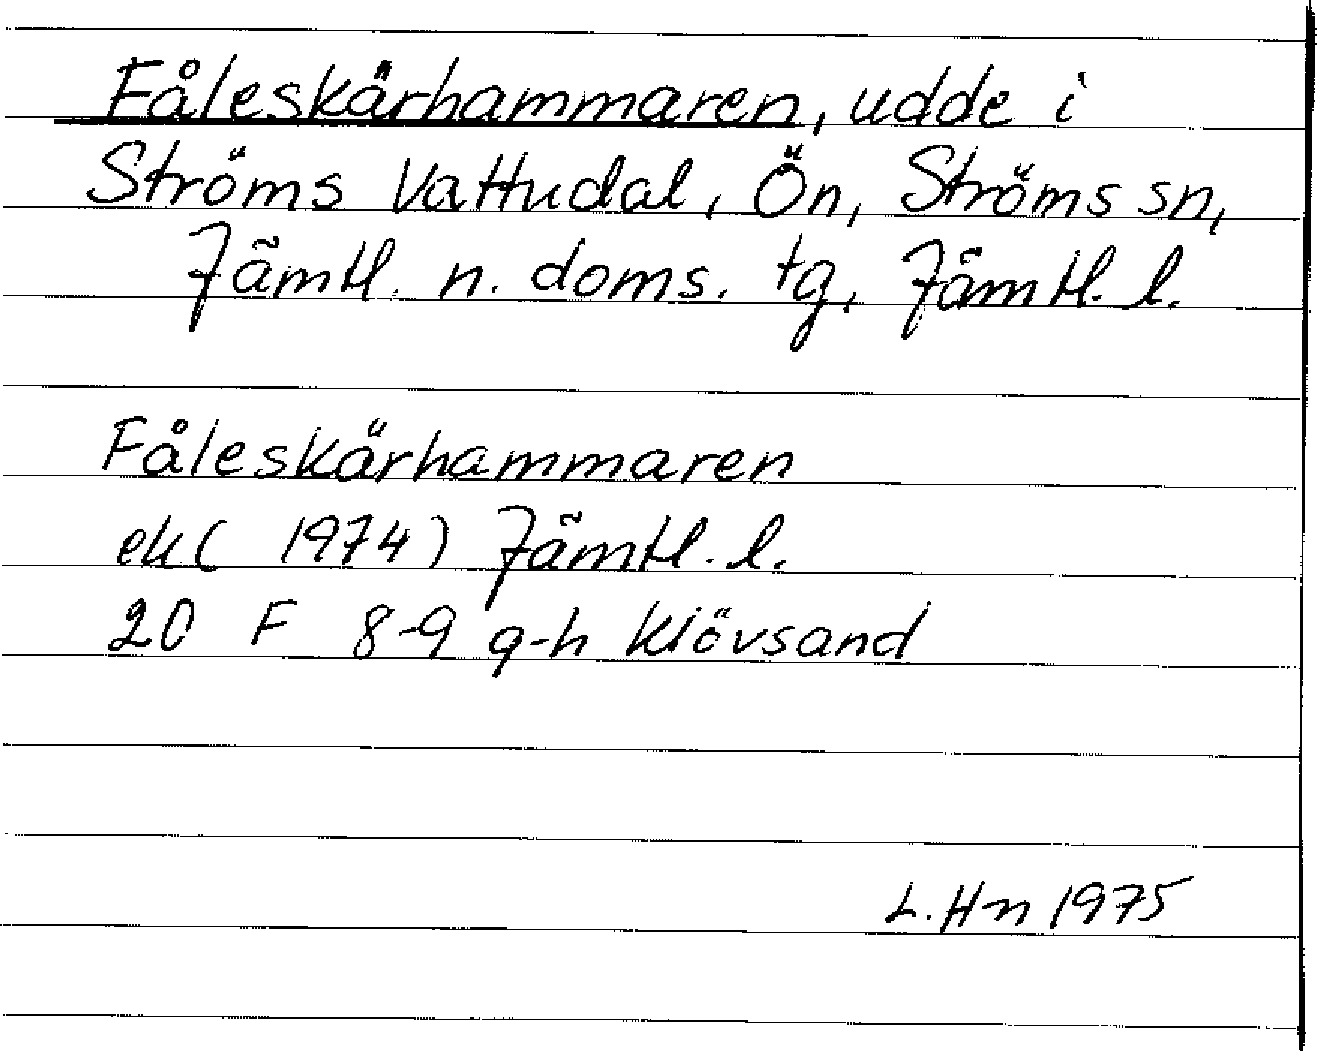 Fåleskärhammaren, udde i
Ströms Vattudal, Ön, Ströms sn,
Jämtl. n. doms. tg, Jämtl. l.
Fåleskärhammaren
ek ( 1974) Jämtl. l.
20 F 8-9 g-h Klövsand
L. Hn 1975